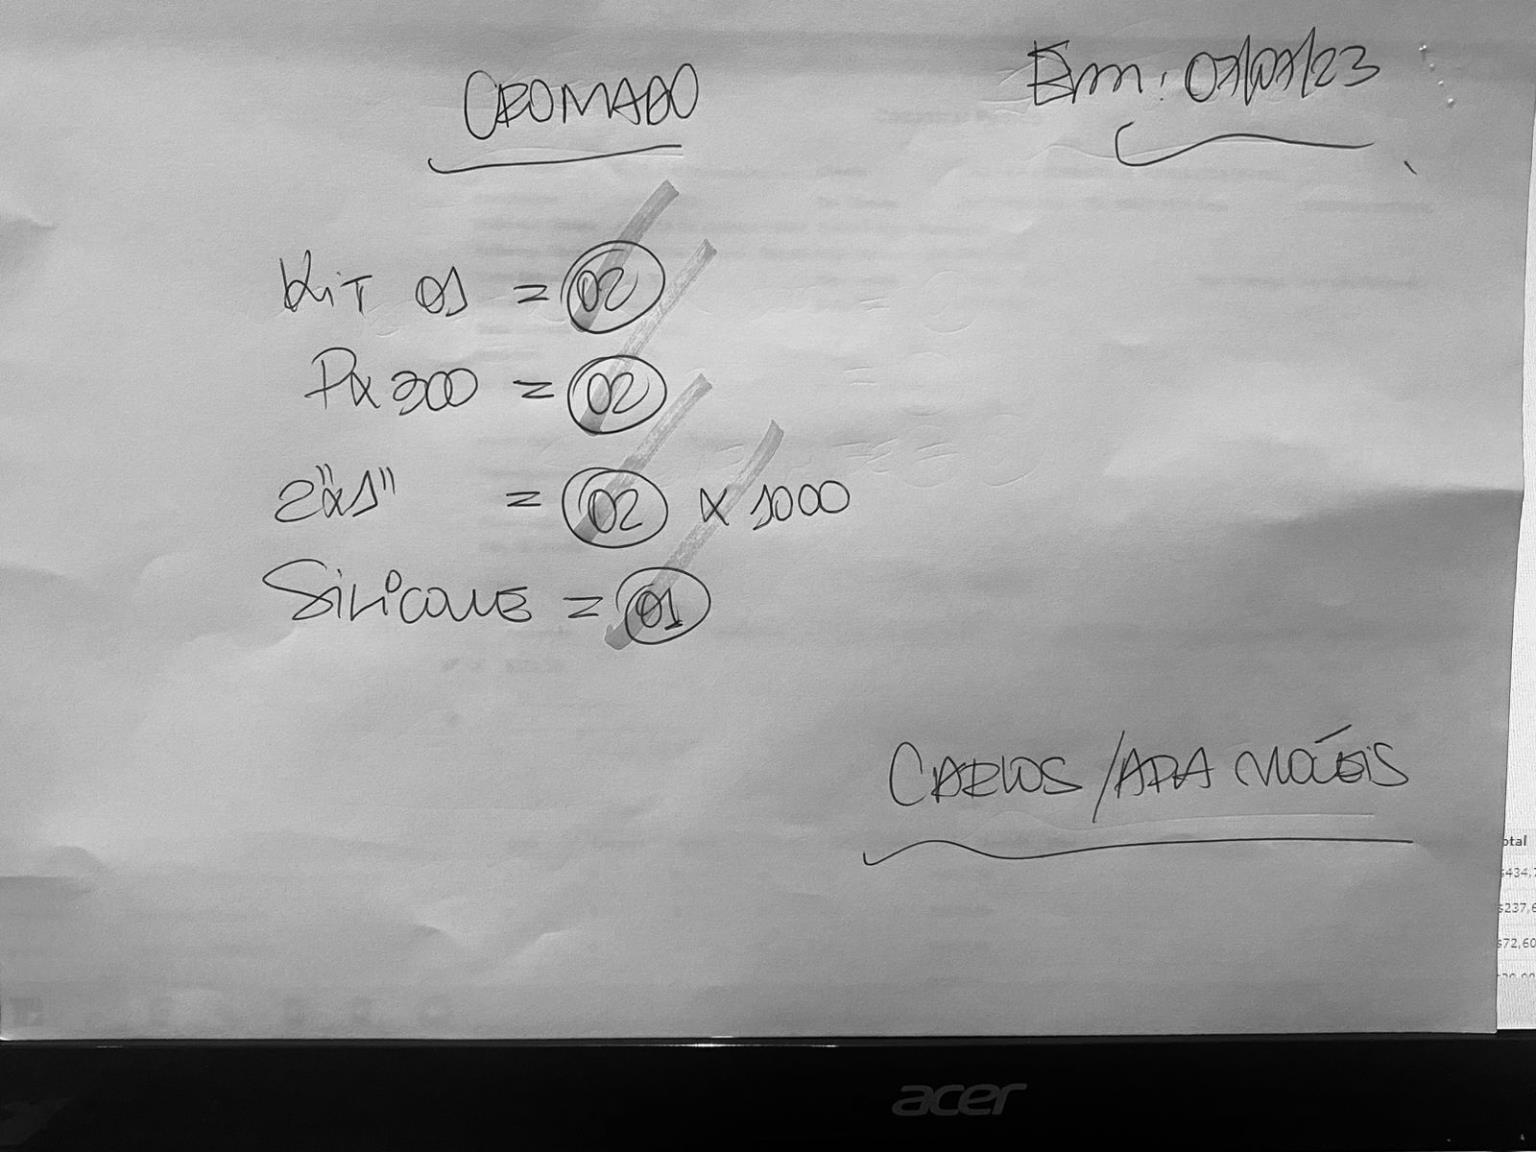 CROMADO
Em: 07/07/23
Kit 01 = 02
Px 300 = 02
2"x1" = 02 x 1000
Silicone = 01
CARLOS / ARA MÓVEIS
otal
$434,7
$237,6
$72,60
acer